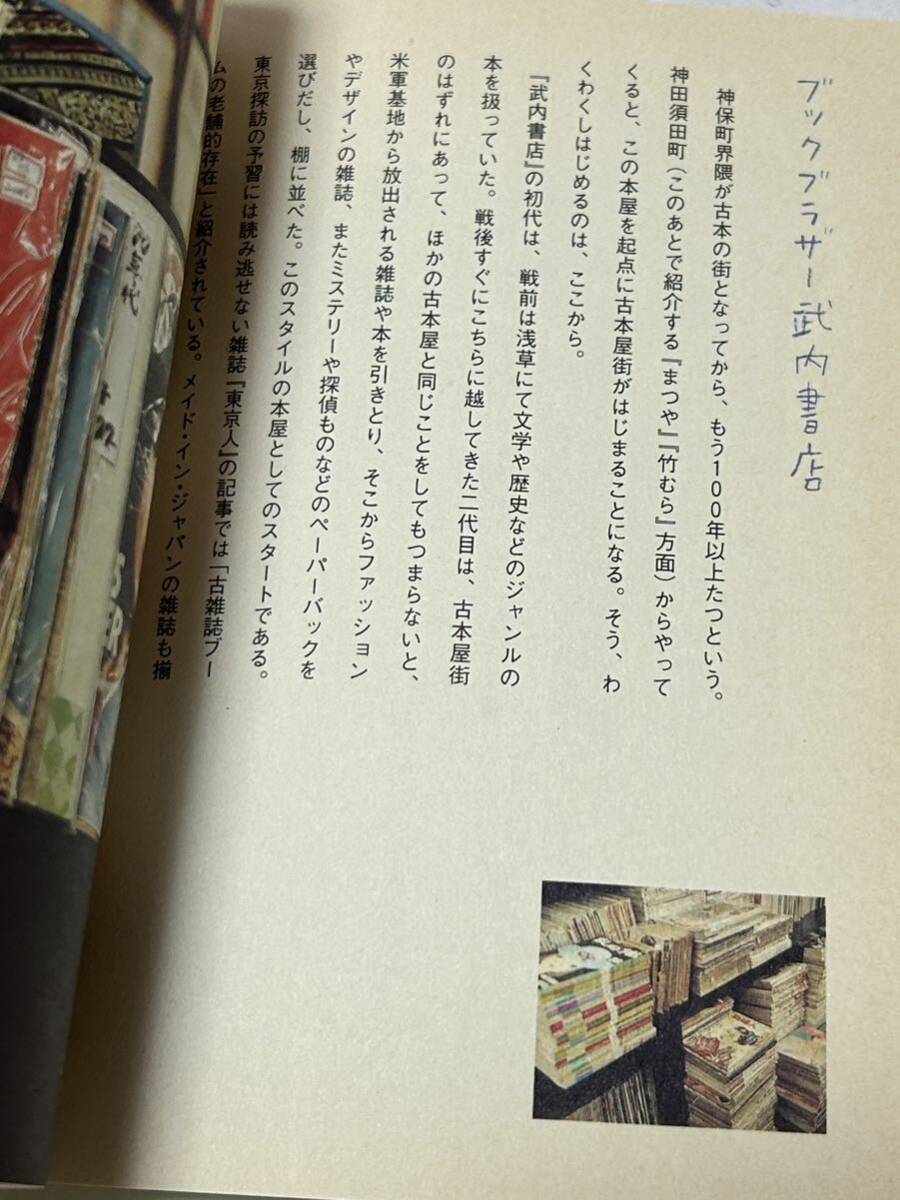 ブックブラザー武内書店
神保町界隈が古本の街となってから、もう100年以上たつという。
神田須田町（このあとで紹介する『まつや』『竹むら』方面）からやって
くると、この本屋を起点に古本屋街がはじまることになる。そう、わ
くわくしはじめるのは、ここから。
『武内書店』の初代は、戦前は浅草にて文学や歴史などのジャンルの
本を扱っていた。戦後すぐにこちらに越してきた二代目は、古本屋街
のはずれにあって、ほかの古本屋と同じことをしてもつまらないと、
米軍基地から放出される雑誌や本を引きとり、そこからファッション
やデザインの雑誌、またミステリーや探偵ものなどのペーパーバックを
選びだし、棚に並べた。このスタイルの本屋としてのスタートである。
東京探訪の予習には読み逃せない雑誌『東京人』の記事では「古雑誌ブー
ムの老舗的存在」と紹介されている。メイド・イン・ジャパンの雑誌も揃